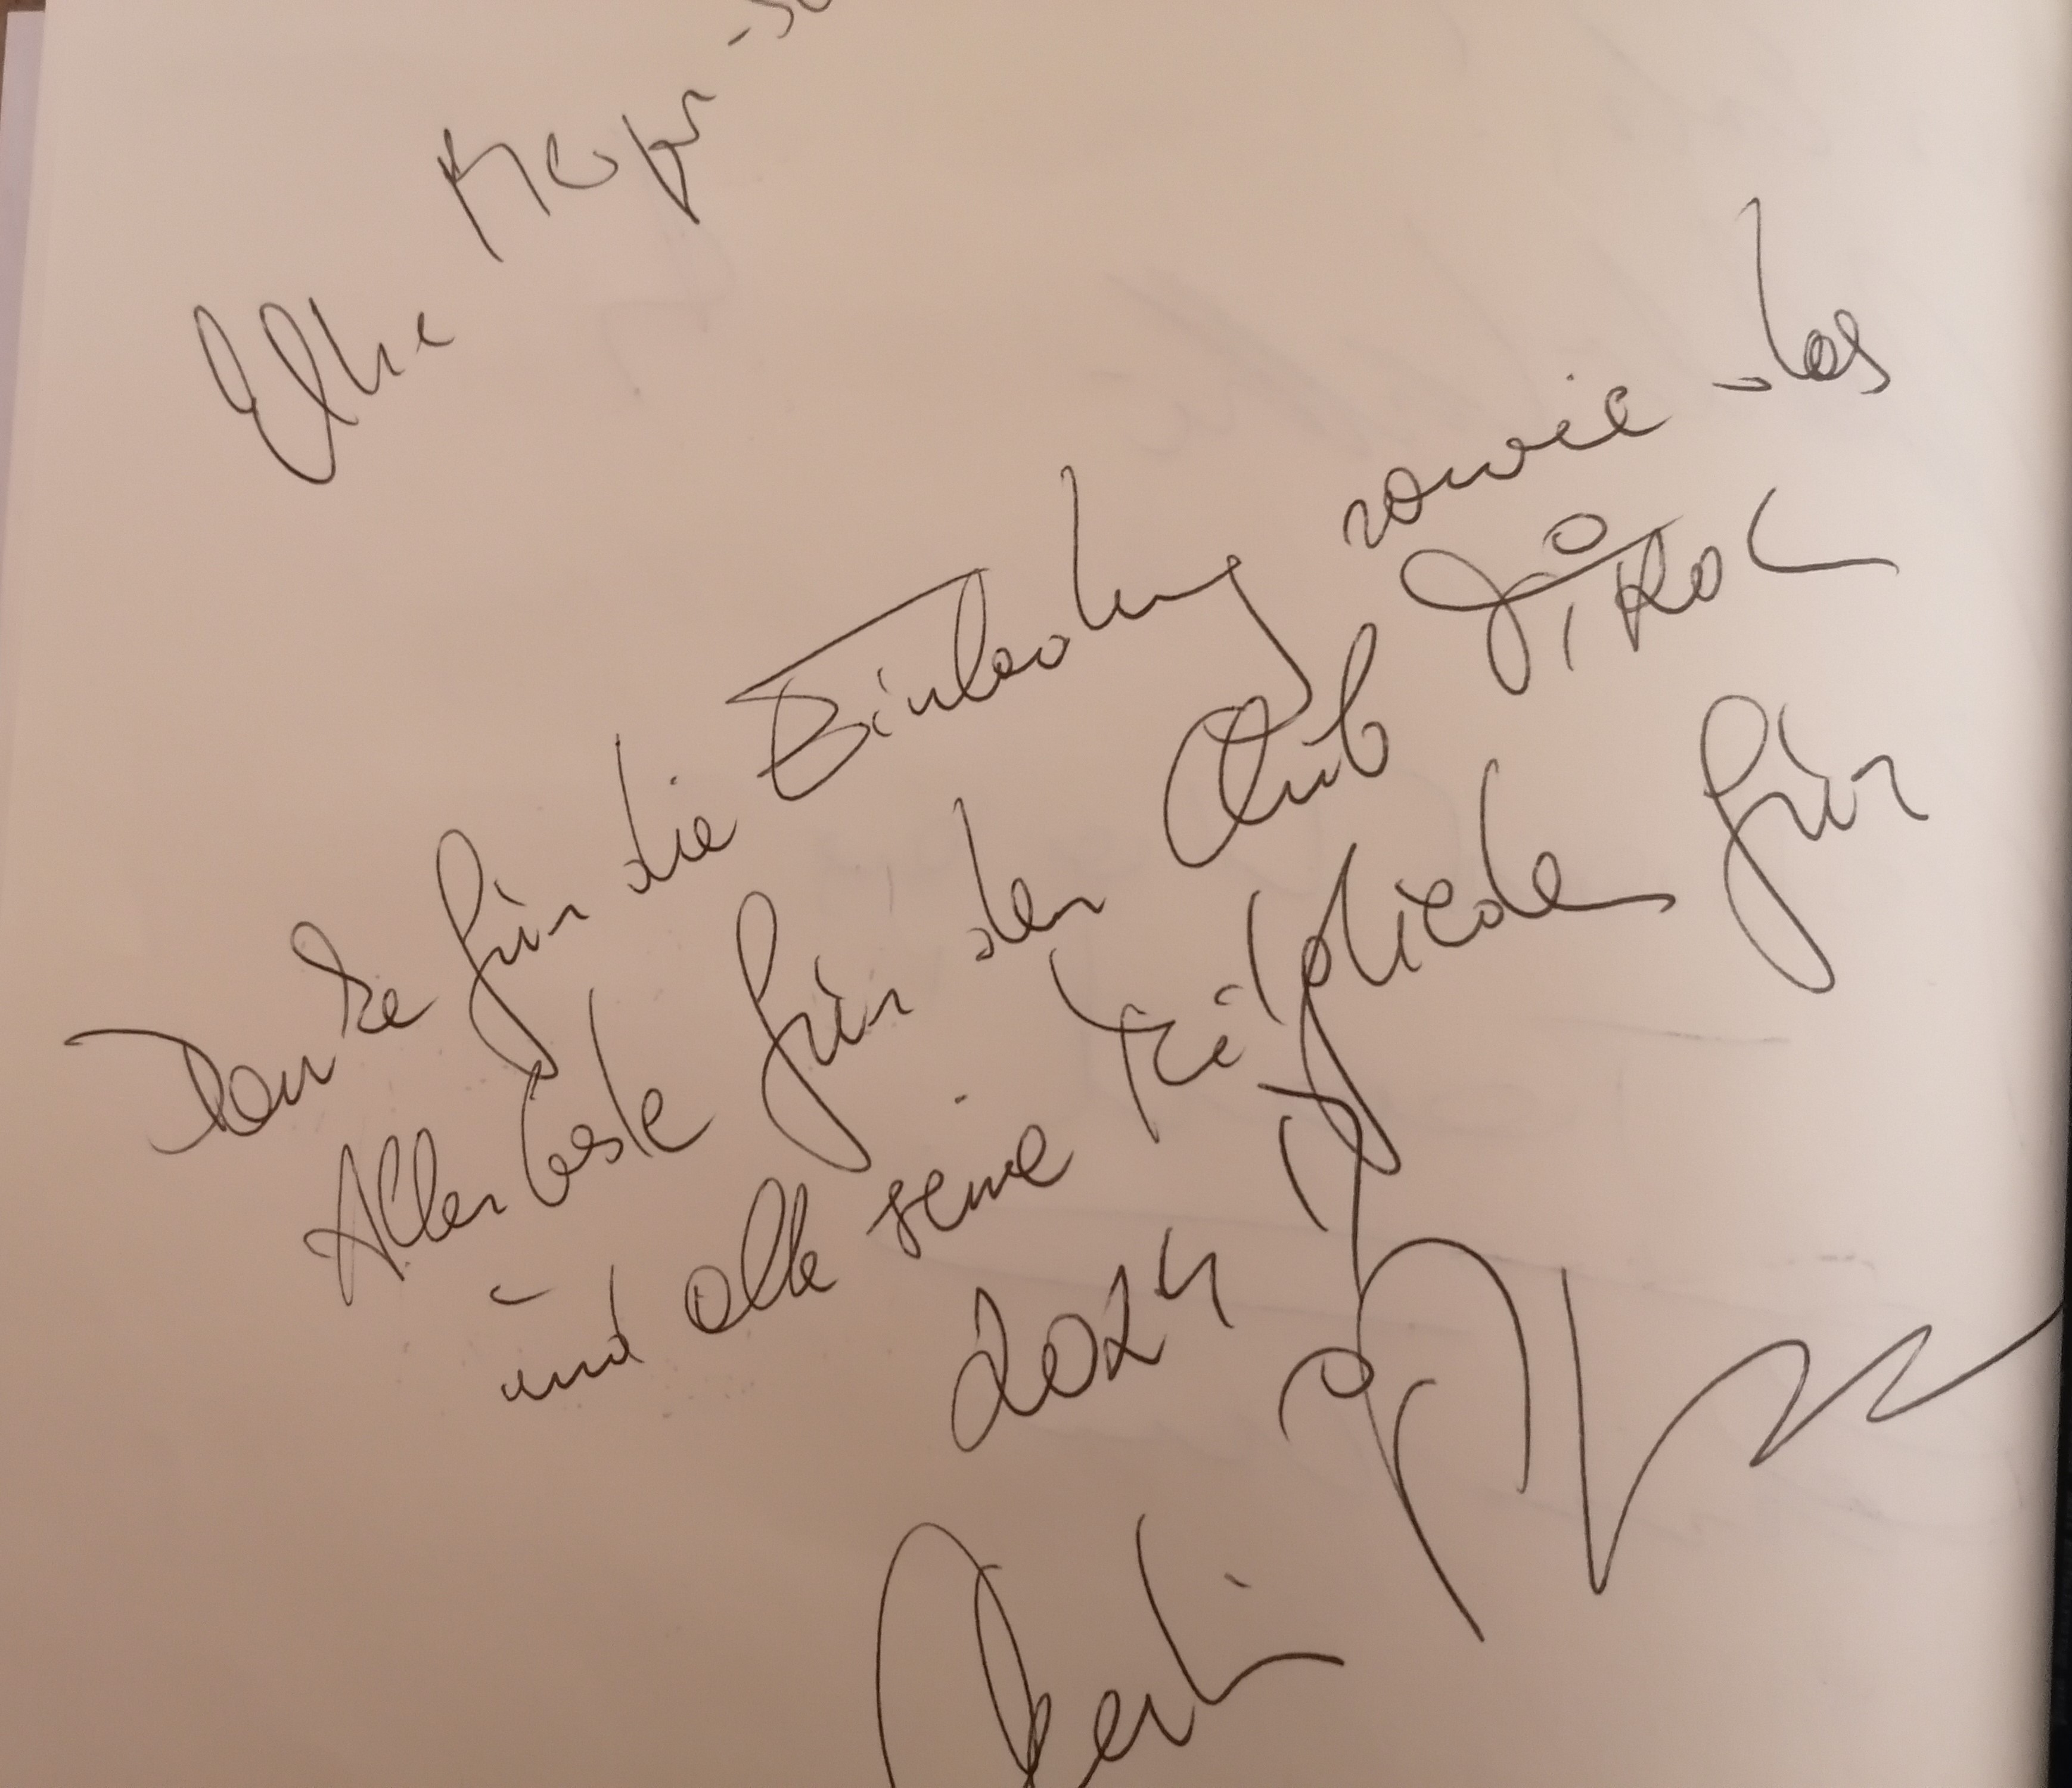 Elke
Danke für die Einladung sowie das
Allerbeste für den Club TIROL
und alle seine Mitglieder für
2024